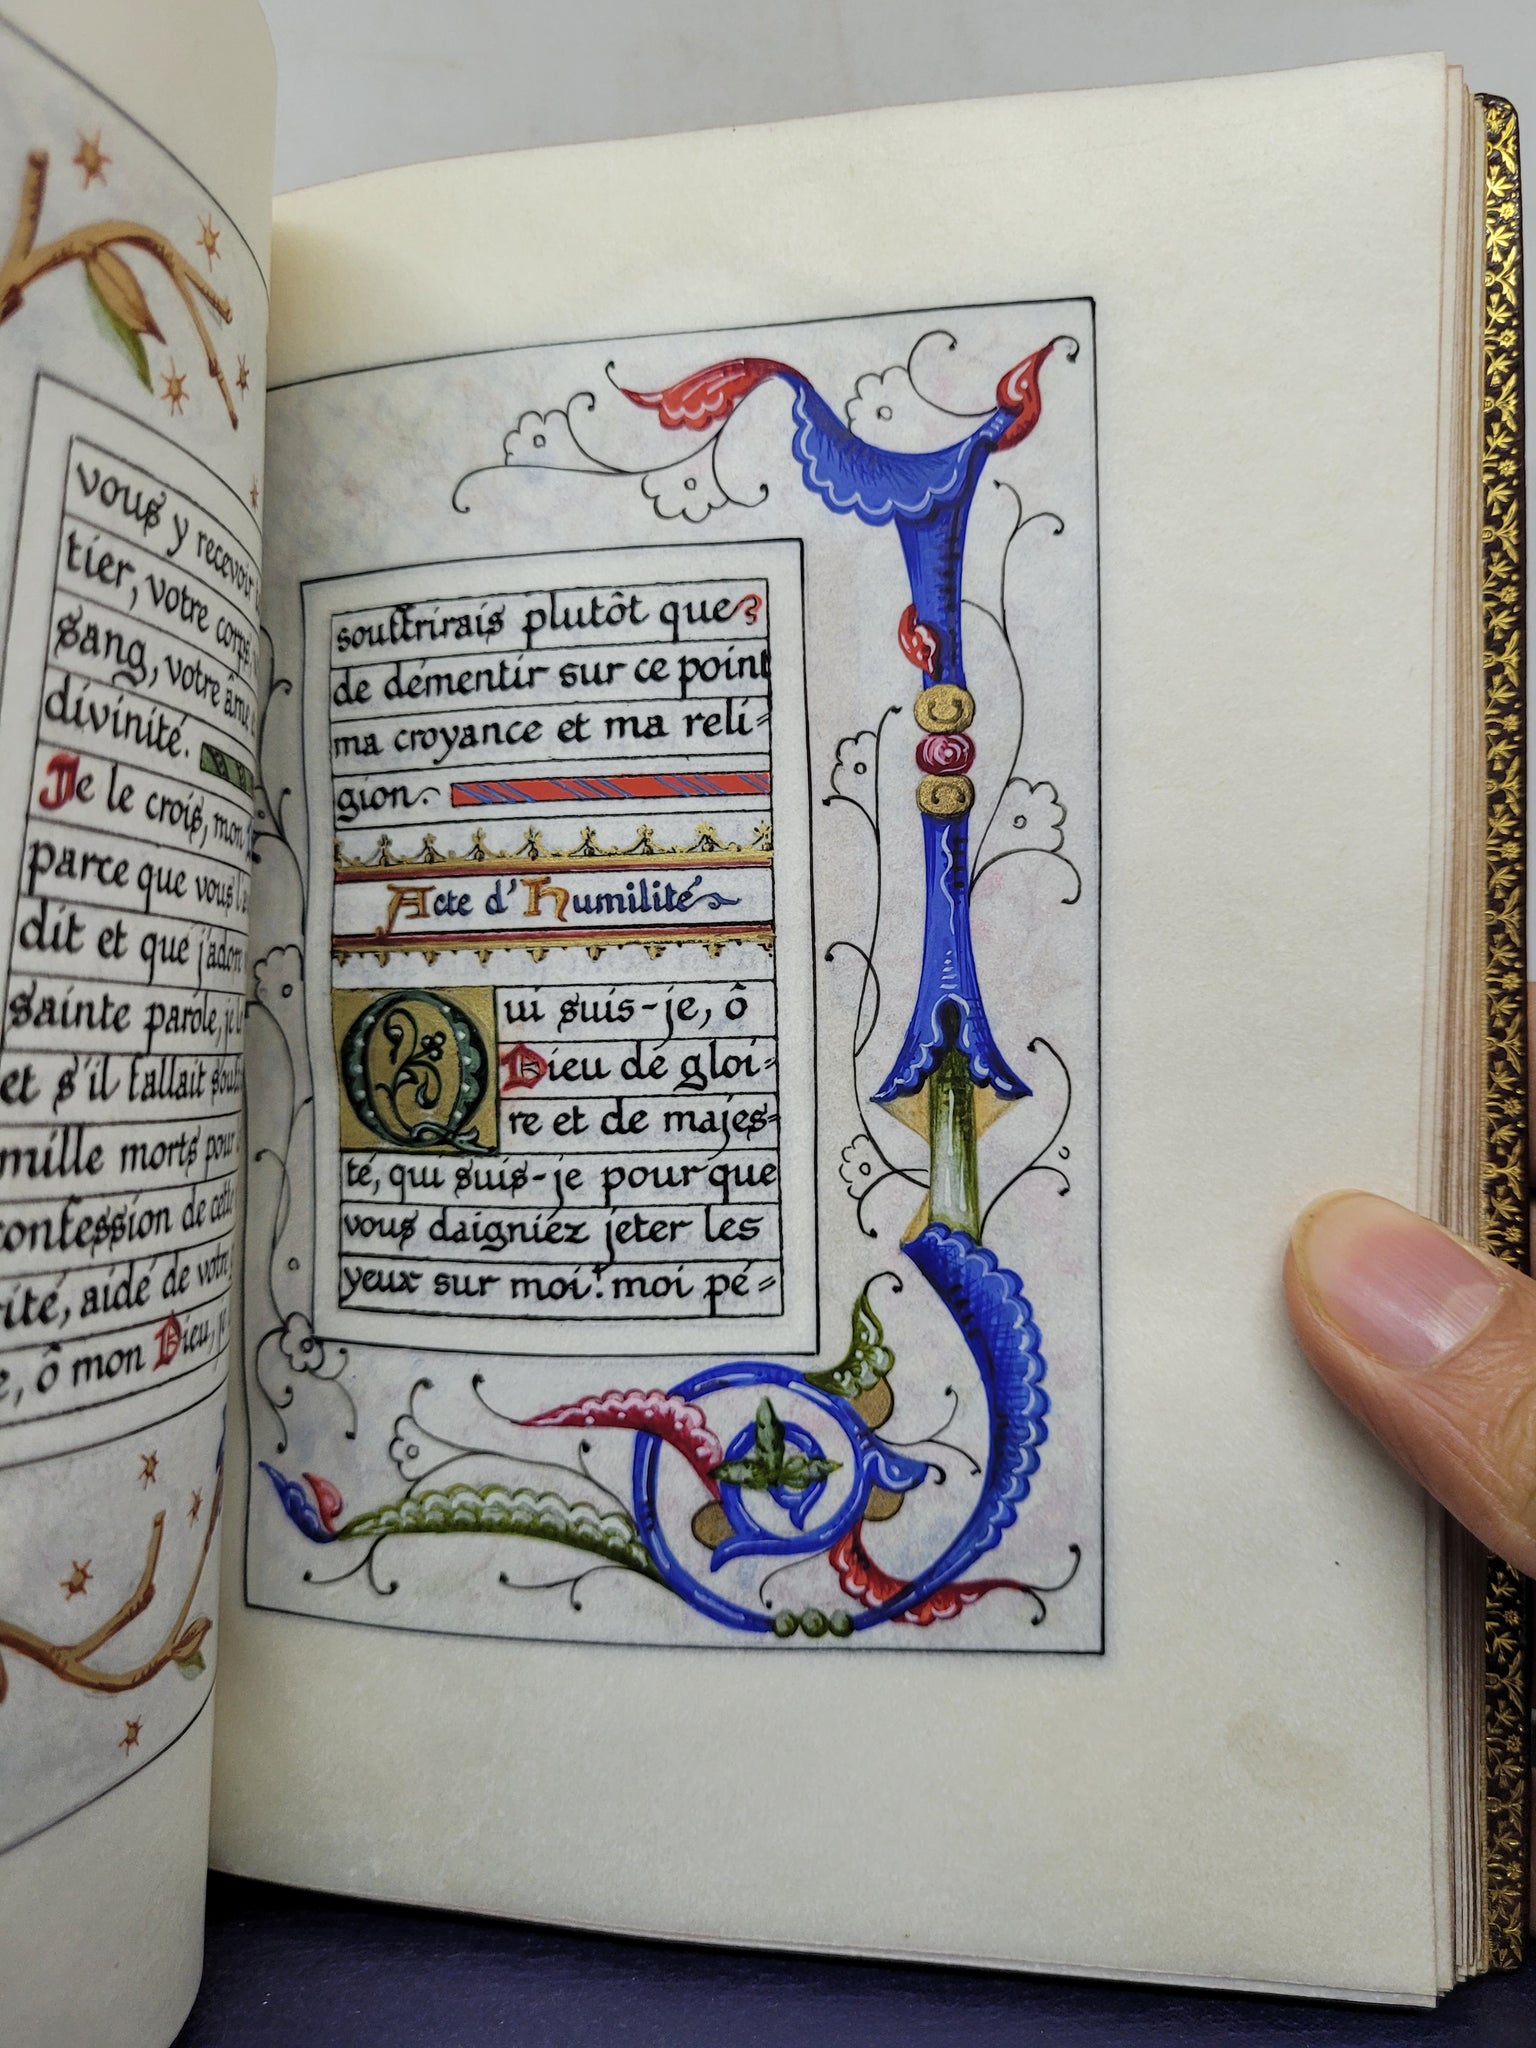 vous y recevoir
tier, votre corps,
sang, votre âme
divinité.
Je le crois, mon
parce que vous l'a
dit et que j'adore
sainte parole, je le
et s'il fallait
mille morts pour
confession de cette
rité, aidé de votre
e, ô mon Dieu, je
souffrirais plutôt que
de démentir sur ce point
ma croyance et ma reli=
gion.
Acte d'humilité
Qui suis-je, ô
Dieu de gloi=
re et de majes=
té, qui suis-je pour que
vous daigniez jeter les
yeux sur moi! moi pé=